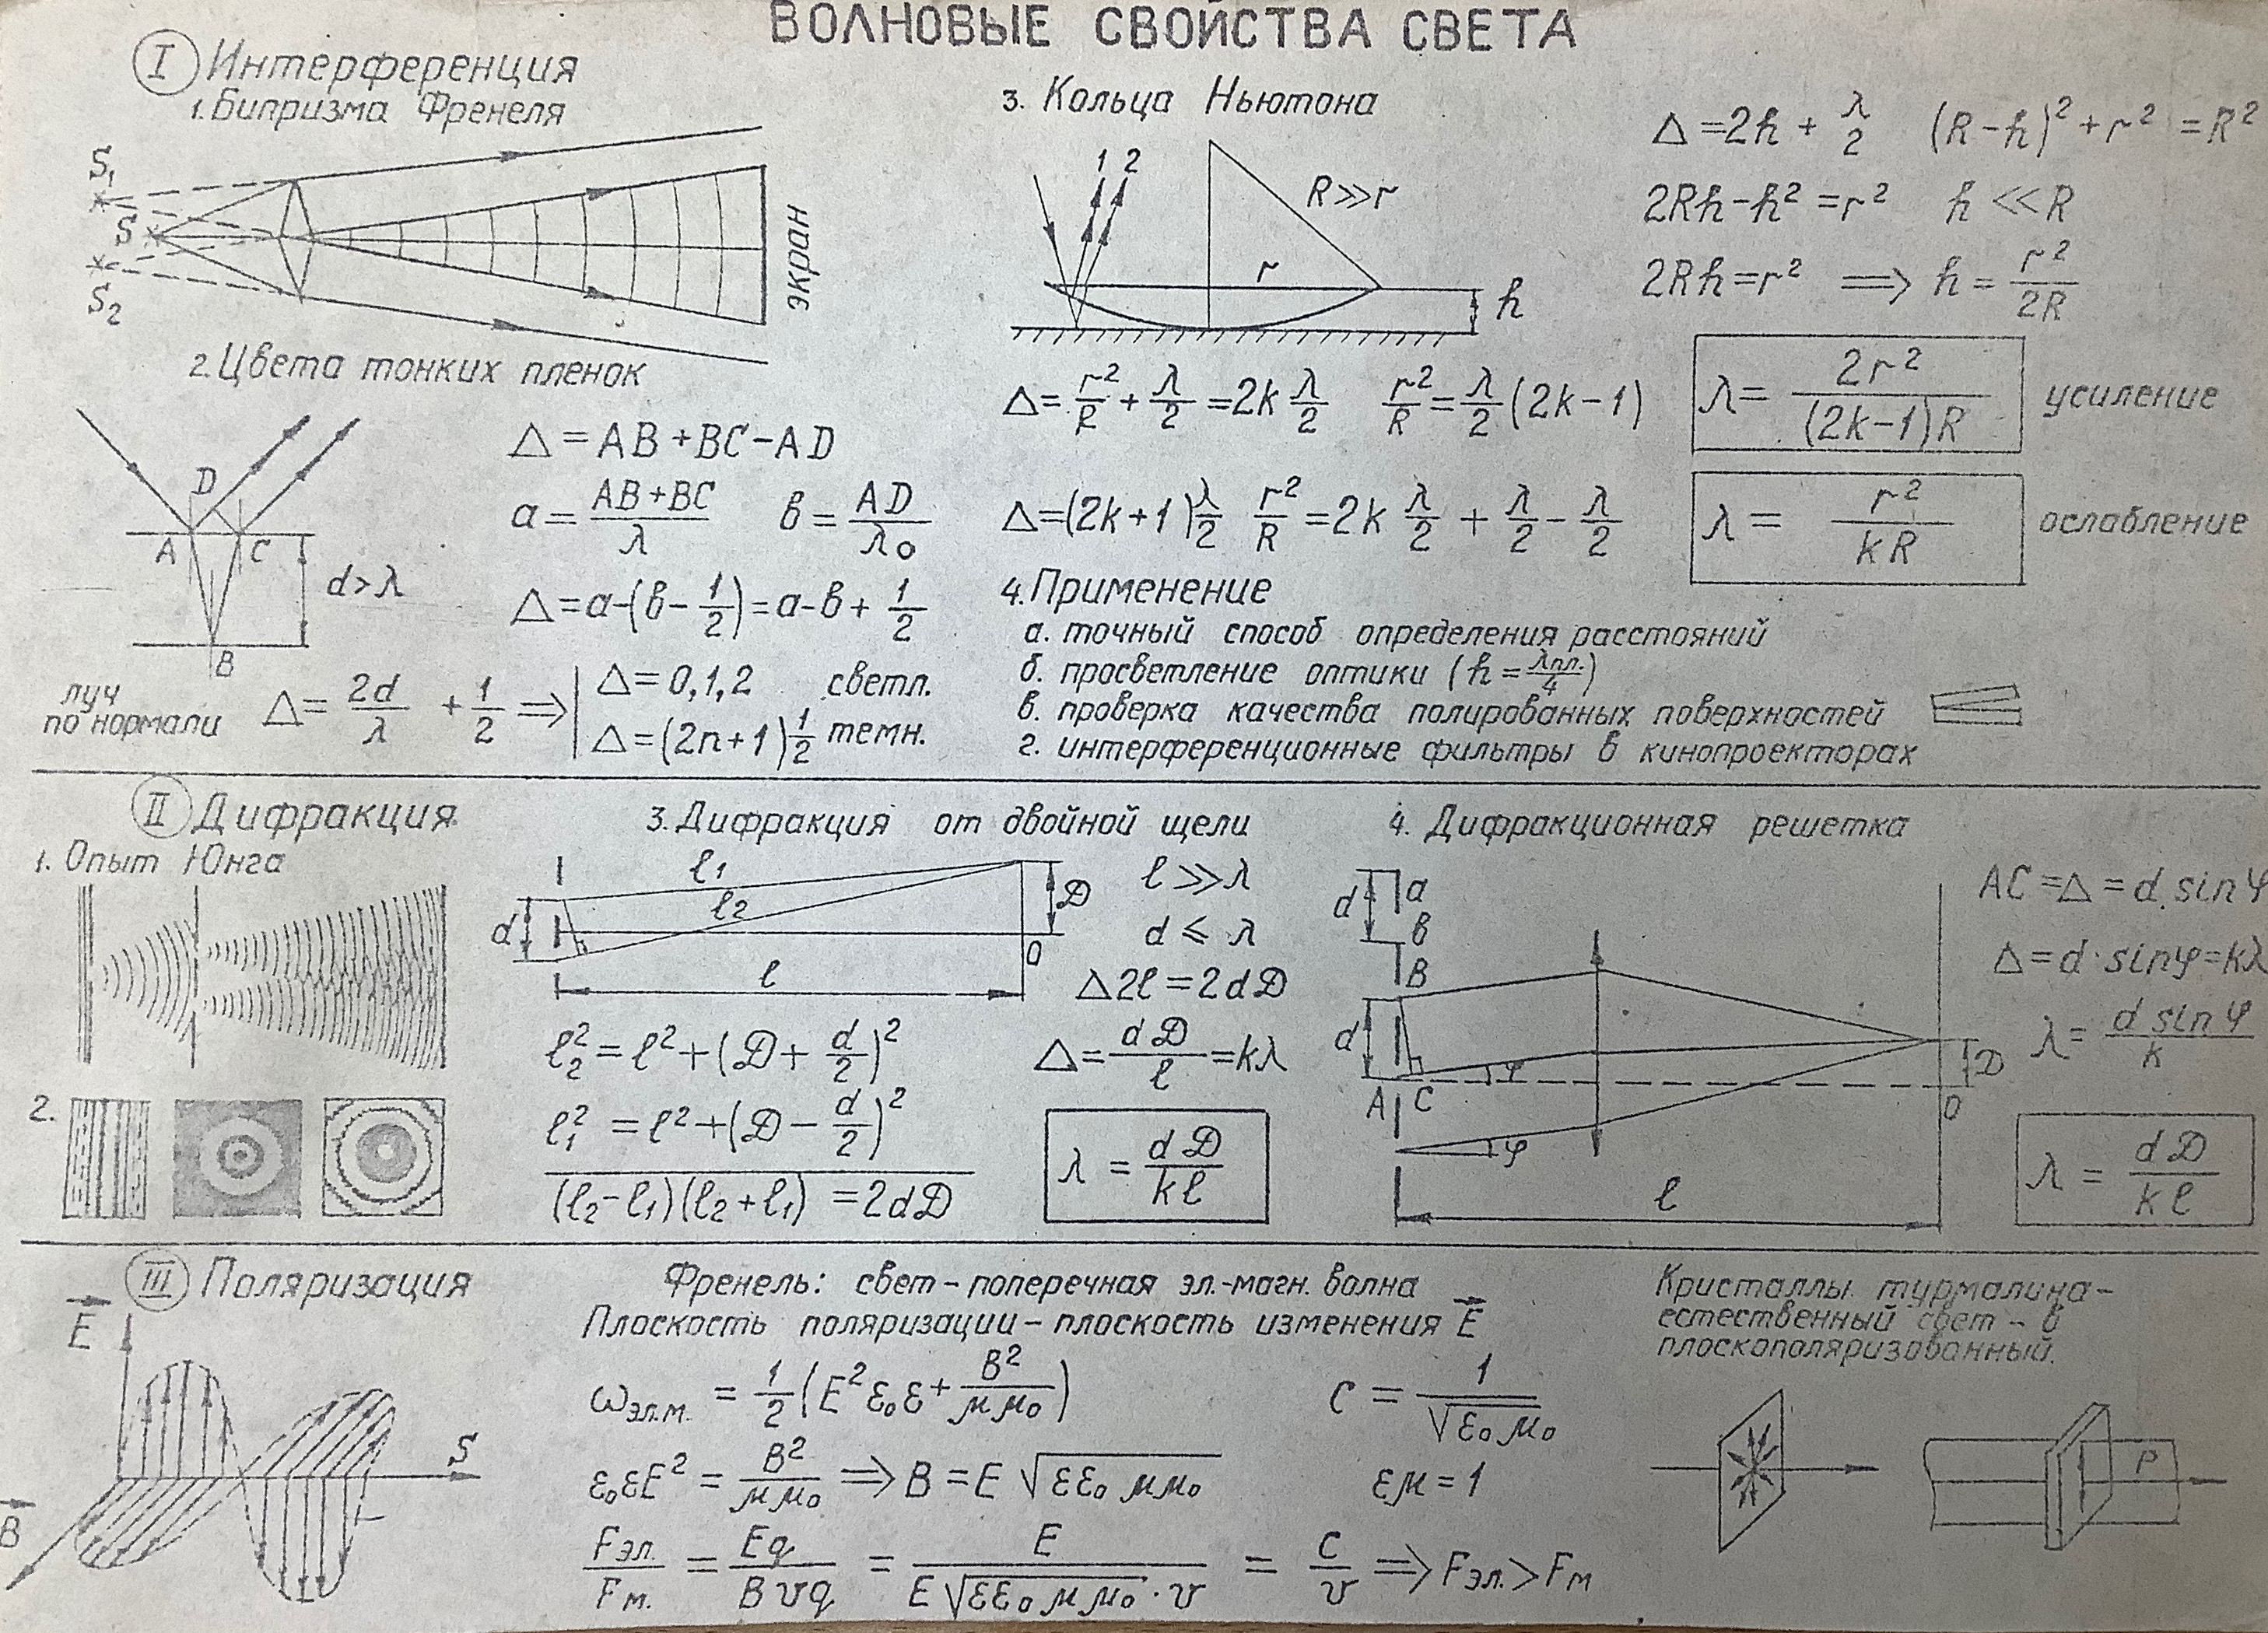 ВОЛНОВЫЕ СВОЙСТВА СВЕТА
I Интерференция
1. Бипризма Френеля
S₁
S
S₂
экран
2. Цвета тонких пленок
D
A
C
B
d > λ
Δ = AB + BC − AD
a = (AB + BC)/λ   в = AD/λ₀
Δ = a − (в − 1/2) = a − в + 1/2
луч по нормали Δ = 2d/λ + 1/2 ⟹
Δ = 0,1,2 светл.
Δ = (2n+1) 1/2 темн.
3. Кольца Ньютона
1 2
R ≫ r
r
h
Δ = 2h + λ/2   (R − h)² + r² = R²
2Rh − h² = r²   h ≪ R
2Rh = r² ⟹ h = r²/2R
Δ = r²/R + λ/2 = 2k λ/2   r²/R = λ/2 (2k − 1)
λ = 2r²/((2k−1)R) усиление
Δ = (2k+1) λ/2   r²/R = 2k λ/2 + λ/2 − λ/2
λ = r²/kR ослабление
4. Применение
а. точный способ определения расстояний
б. просветление оптики (h = λпл./4)
в. проверка качества полированных поверхностей
г. интерференционные фильтры в кинопроекторах
II Дифракция
1. Опыт Юнга
2.
3. Дифракция от двойной щели
l₁
l₂
d
D
O
l
l ≫ λ
d ⩽ λ
Δ2l = 2dD
l₂² = l² + (D + d/2)²
l₁² = l² + (D − d/2)²
(l₂ − l₁)(l₂ + l₁) = 2dD
Δ = dD/l = kλ
λ = dD/kl
4. Дифракционная решетка
d
a
в
B
d
A
C
φ
φ
D
O
l
AC = Δ = d. sin φ
Δ = d · sin φ = kλ
λ = d sin φ/k
λ = dD/kl
III Поляризация
E
S
B
Френель: свет – поперечная эл.-магн. волна
Плоскость поляризации – плоскость изменения E
ωэл.м. = 1/2 (E²ε₀ε + B²/μμ₀)   C = 1/√(ε₀μ₀)
ε₀εE² = B²/μμ₀ ⟹ B = E √(εε₀μμ₀)   εμ = 1
Fэл./Fм. = Eq/Bvq = E/(E√(εε₀μμ₀) · v) = C/v ⟹ Fэл. > Fм
Кристаллы турмалина –
естественный свет – в
плоскополяризованный.
P